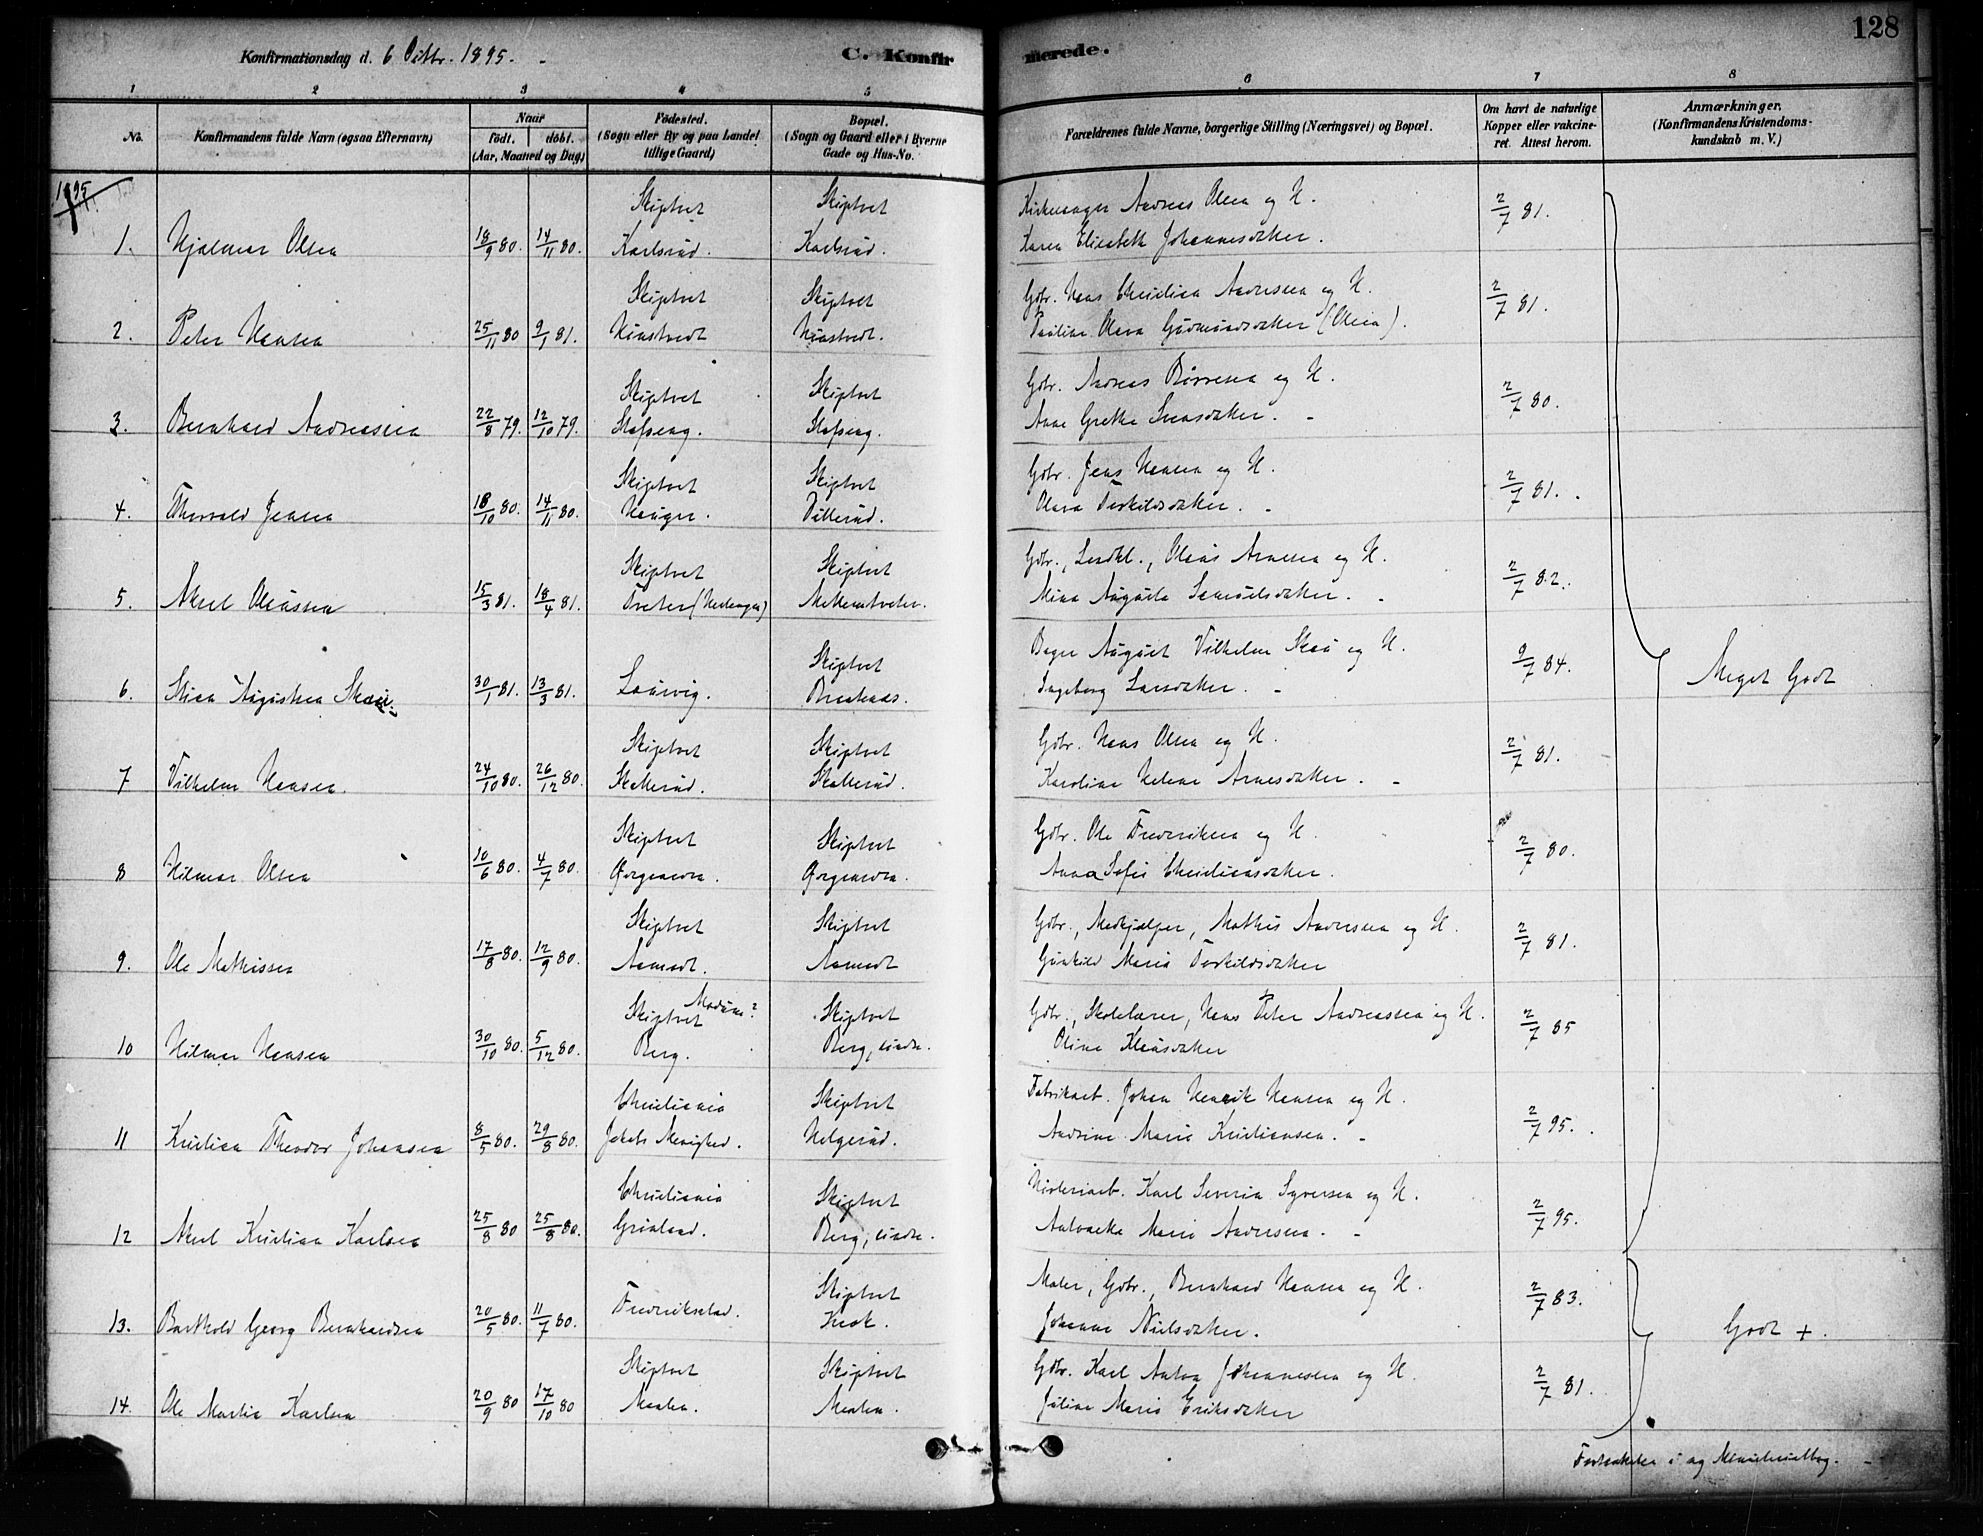 128
Konfirmationsdag d. 6 Oktbr. 1895.
C. Konfirmerede.
1 2 3 4 5 6 7 8
No.
Konfirmandens fulde Navn (ogsaa Efternavn)
Naar
födt. döbt.
(Aar, Maaned og Dag)
Födested.
(Sogn eller By og paa Landet
tillige Gaard)
Bopæl.
(Sogn og Gaard eller i Byerne
Gade og Hus-No.
Forældrenes fulde Navne, borgerlige Stilling (Næringsvei) og Bopæl.
Om havt de naturlige
Kopper eller vakcine-
ret. Attest herom.
Anmærkninger.
(Konfirmandens Kristendoms-
kundskab m. V.)
1895
Skiptvet Skiptvet Kirkesanger Andreas Olsen og H. 2/7 81.
1. Hjalmar Olsen 18/9 80. 14/11 80. Karlsrud. Karlsrud. Karen Elisabeth Johannesdatter.
Skiptvet Skiptvet Gbr. Hans Christian Andersen og H. 2/7 81.
2. Peter Hansen 25/11 80 9/1 81. Pauline Olava Gudmundsdatter (Olsen).
Skiptvet Skiptvet Gbr. Andreas Börresen og H. 2/7 80.
3. Bernhard Andreassen 22/8 79. 12/10 79. Anne Grethe
Skiptvet Skiptvet Gbr. Jens Hansen og H. 2/7 81.
4. Thorvald Jensen 18/10 80. 14/11 80. Hauger. Villerud. Olava Torkildsdatter.
Skiptvet Skiptvet Gbr., Olaus Arnesen og H. 2/7 82.
5. Aksel Olaussen 15/3 81. 18/4 81. Tveter Mellemtveter. Mina Augusta Samuelsdatter.
Skiptvet Bager August Vilhelm Skau og H. 9/7 84.
6. Skau. 30/1 81. 13/3 81. Laurvig. Ingeborg Larsdatter.
Meget Godt
Skiptvet Skiptvet Gbr. Hans Olsen og H. 2/7 81.
7 Vilhelm Hansen. 24/10 80. 26/12 80. Skallerud. Skallerud. Karoline Helene Arnesdatter.
Skiptvet Skiptvet Gbr. Ole Fredriksen og H. 2/7 80.
8 Hilmar Olsen 10/6 80. 4/7 80. Anna Sofie Christiansdatter.
Skiptvet Skiptvet Gbr., Medhjælper, Mathis Andersen og H. 2/7 81.
9. Ole Mathissen 17/8 80. 12/9 80. Aamodt. Aamodt Gunhild Maria Torkildsdatter
Skiptvet Skiptvet Gbr., Skolelærer, Hans Peter Andreassen og H. 2/7 85
10 Hilmar Hansen 30/10 80. 5/12 80. Berg. Berg, søndre. Oline Klausdatter
Christiania Skiptvet Fabrikarb. Johan Henrik Hansen og H. 2/7 95.
11 Kristian Theodor Johansen 8/5 80. 29/8 80. Jakobs Menighed. Helgerud. Andrine Marie Kristiansen.
Christiania Skiptvet Karl Severin Syversen og H. 2/7 95.
12 Aksel Kristian Karlsen 25/8 80 25/8 80. Grönland. Berg, søndre. Marie Andersen.
Skiptvet Maler, Gbr., Bernhard Hansen og H. 2/7 83.
13. Barthold Georg Bernhardsen 20/5 80. 11/7 80. Fredrikstad. Krok. Johanne Nielsdatter.
Godt +.
Skiptvet Skiptvet Gbr. Karl Anton Johannesen og H. 2/7 81.
14. Ole Martin Karlsen 20/9 80 17/10 80 Maalen. Maalen. Juline Marie Eriksdatter
Fortsættelse i ny Ministerialbog.